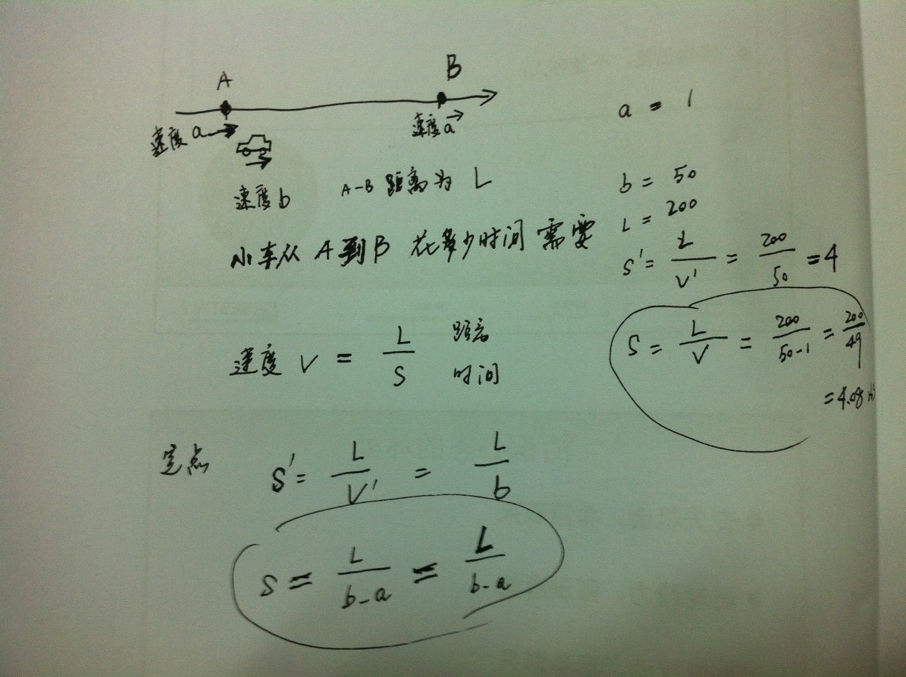 A
B
速度 a
速度 a
速度 b A-B 距离为 L
小车从 A 到 B 花多少时间 需要
速度 V = L/S 距离/时间
定点 S' = L/V' = L/b
S = L/b-a = L/b-a
a = 1
b = 50
L = 200
S' = L/V' = 200/50 = 4
S = L/V = 200/50-1 = 200/49
= 4.08